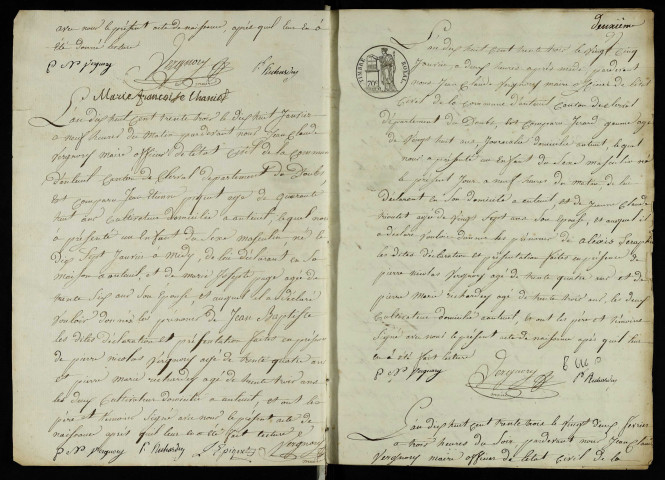 avec nous le présent acte de naissance, après que lecture en a
été donné lecture
P N Vergnory Vergnory P. Richardey
Marie françoise Chaniot
L'an dix huit cent trente trois le dix huit Janvier
a neuf heures du Matin pardevant nous Jean Claude
Vergnory maire officier de l'état civil de la Commune
d'auteuil Canton de Clerval département du Doubs
Est comparu Jean Etienne agé de quarante
huit ans Cultivateur domicilié a auteuil, lequel nous
a présenté un Enfant du Sexe masculin, né le
Dix Sept Janvier a Midy, de lui déclarant en Sa
maison a auteuil, et de marie Josephe page agé de
trente Six ans Son Epouse et auquel il a déclaré
vouloir donné les prénoms de Jean Baptiste
les dites déclaration et présentation faites en présence
de pierre nicolas Vergnory agé de trente quatre ans
et pierre marie richardey agé de trente trois ans
les deux Cultivateur domicilié a auteuil, et ont les
père et temoins Signé avec nous le présent acte de
naissance après quil leur en été fait lecture
P N Vergnory P. Richardey Vergnory
deuxième
TIMBRE ROYAL
L'an dix huit cent trente trois le vingt cinq
Janvier a deux heures après midi pardevant
nous Jean Claude Vergnory maire officier de l'état
Civil de la Commune d'auteuil Canton de Clerval
département du Doubs, Est comparu
de Vingt huit ans, domicilié auteuil, lequel
nous a présenté un Enfant du Sexe masculin né
a neuf heures du matin, de lui
déclarant en Son domicile a auteuil et de Jeanne Claude
agée de Vingt Sept ans Son épouse, et auquel il
a déclaré vouloir donner les prénoms de alexis Seraphin
les dites déclaration et présentation faites en présence de
pierre nicolas Vergnory agé de trente quatre ans et de
pierre Marie richardey agé de trente trois ans, les deux
Cultivateur domicilié auteuil, et ont les père et témoins
Signé avec nous le présent acte de naissance après quil leur
en a été fait lecture
P N Vergnory Vergnory P. Richardey
L'an dix huit cent trente trois le vingt deux fevrier
a trois heures du Soir pardevant nous Jean Claude
Vergnory maire officier de l'état civil de la